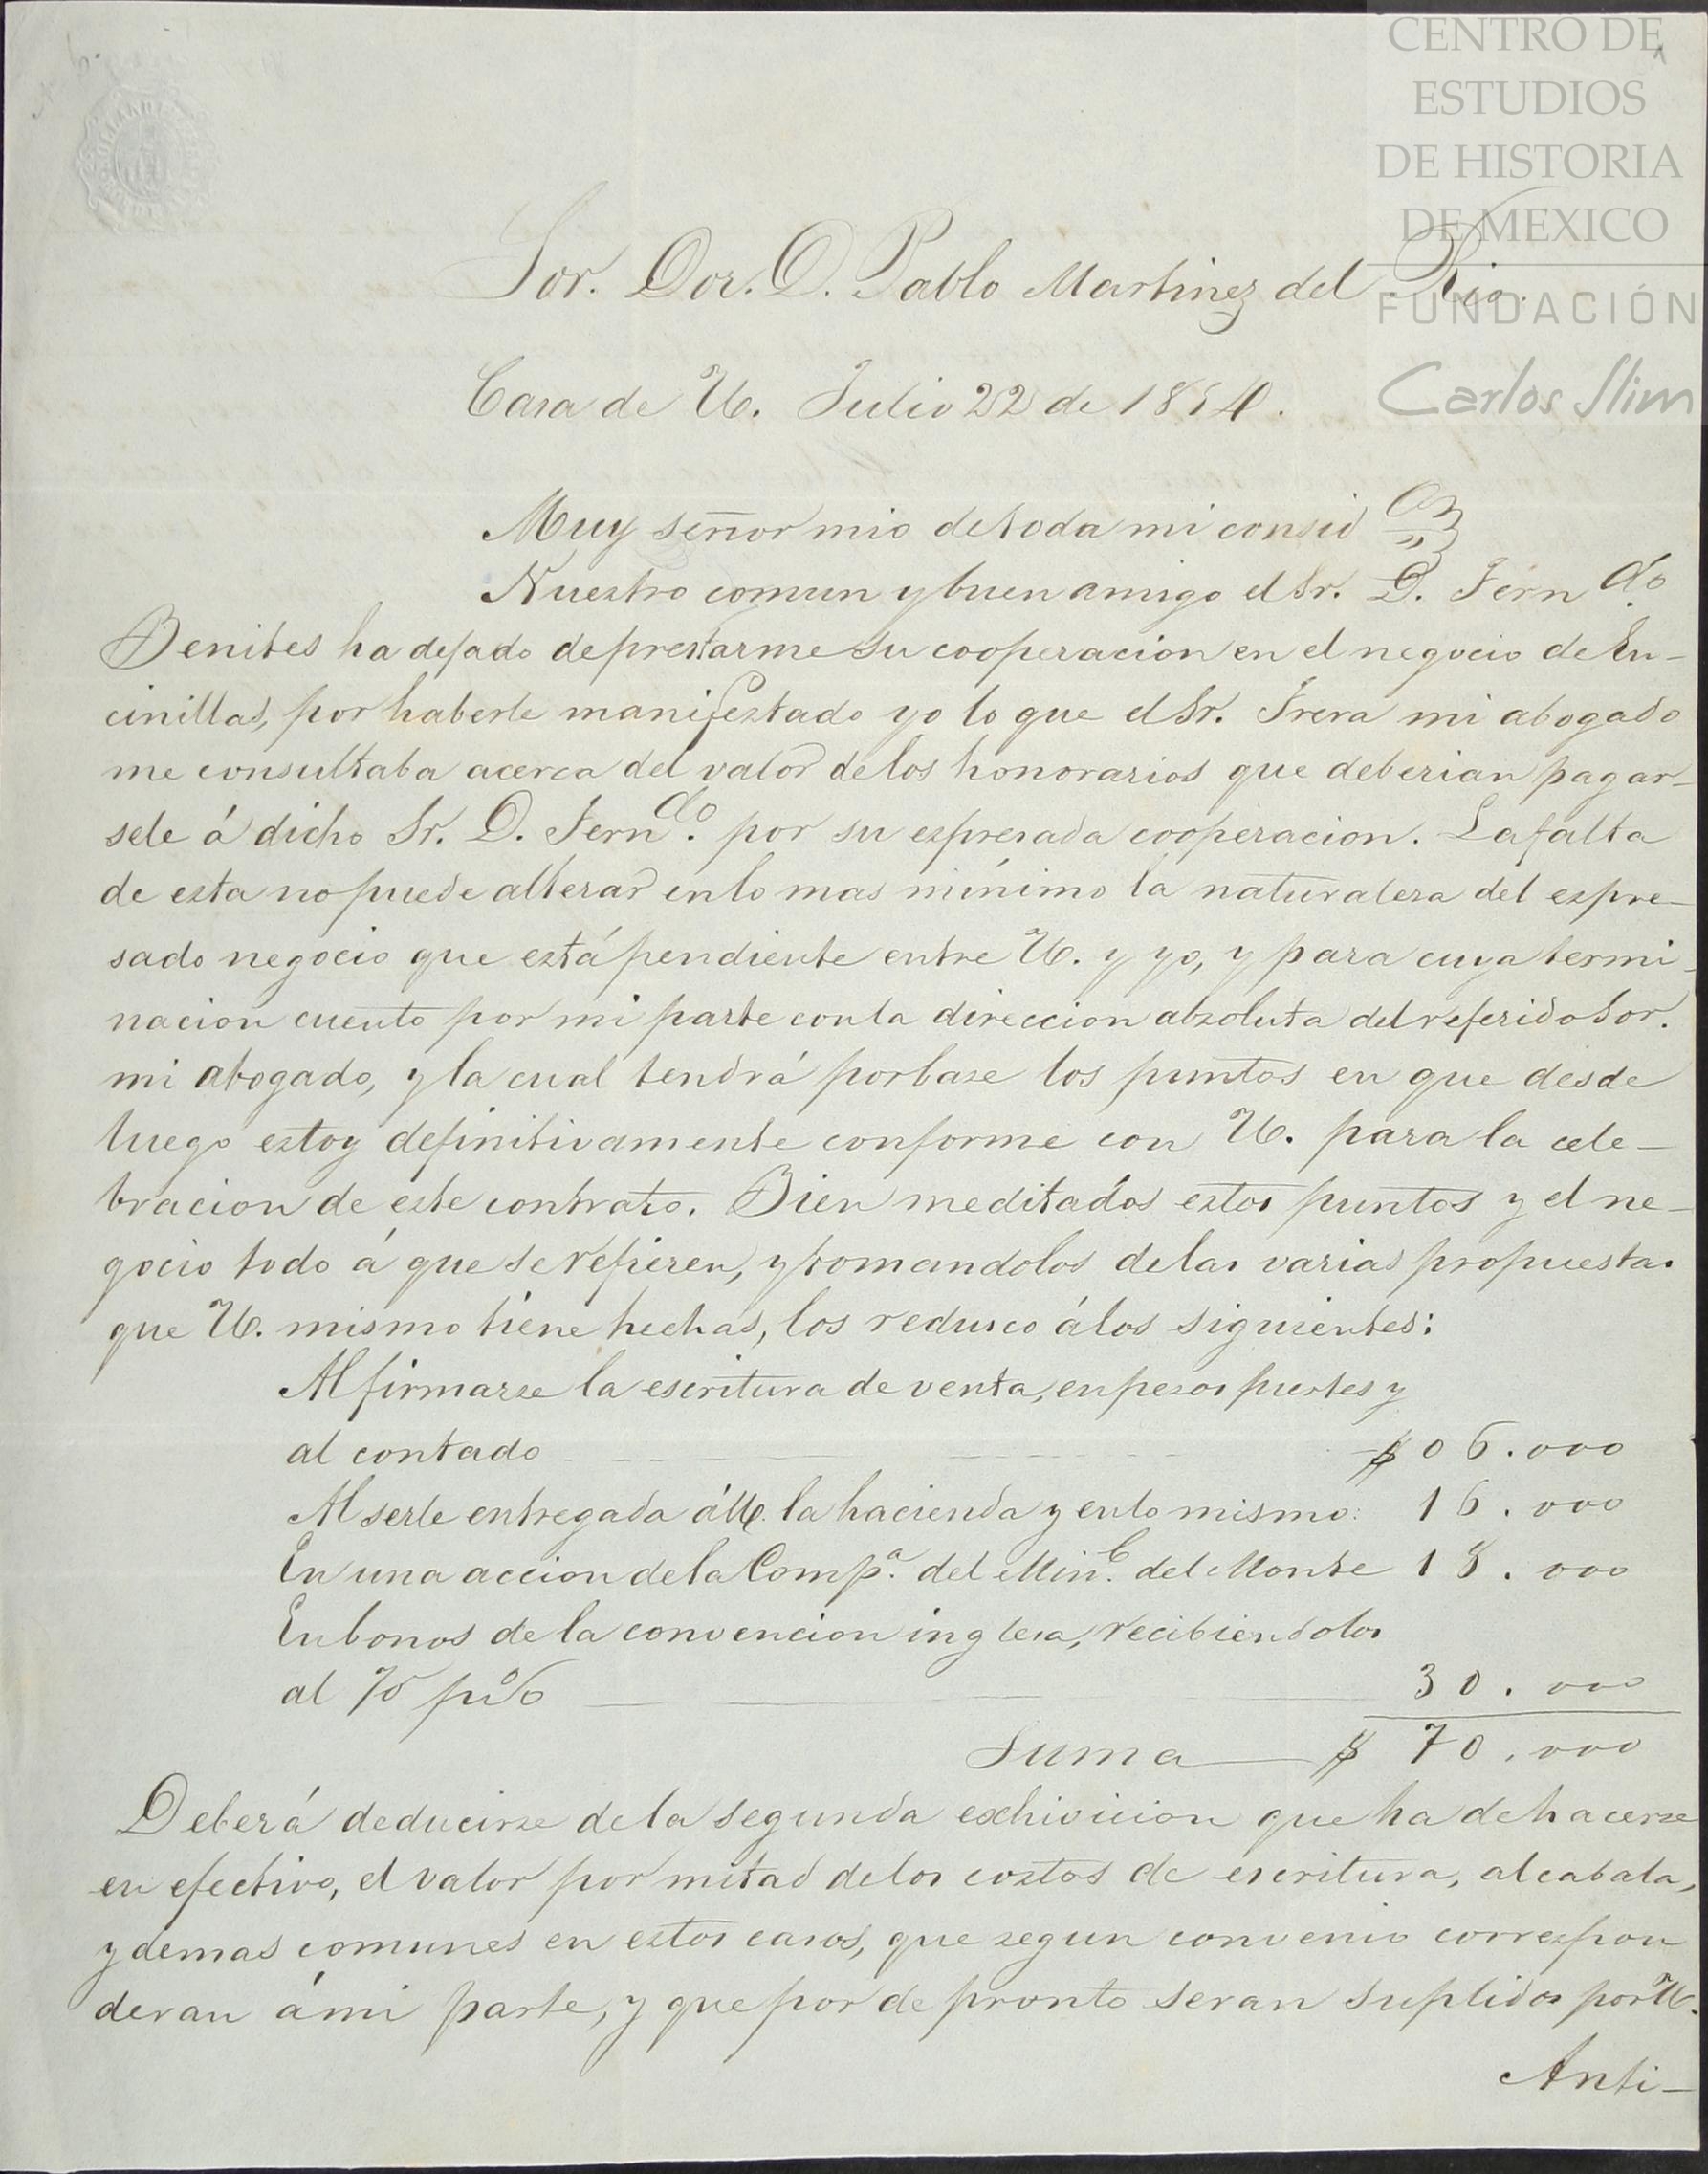 CENTRO DE
ESTUDIOS
DE HISTORIA
DE MEXICO
FUNDACIÓN
Carlos Slim
Sor. Dor. D. Pablo Martinez del Rio.
Casa de U. Julio 22 de 1854.
Muy señor mio de toda mi consid
Nuestro comun y buen amigo el Sr. D. Fern do.
Benites ha dejado de prestarme su cooperacion en el negocio de En-
cinillas, por haberle manifestado yo lo que el Sr. mi abogado
me consultaba acerca del valor de los honorarios que deberian pagar-
sele á dicho Sr. D. Fern do. por su espresada cooperacion. La falta
de esta no puede alterar en lo mas mínimo la naturalesa del espre-
sado negocio que está pendiente entre U. y yo, y para cuya termi-
nacion cuento por mi parte con la direccion absoluta del referido Sor.
mi abogado, y la cual tendrá por base los puntos en que desde
luego estoy definitivamente conforme con U. para la cele-
bracion de este contrato. Bien meditados estos puntos y el ne-
gocio todo á que se refieren, y tomandolos de las varias propuestas
que U. mismo tiene hechas, los redusco á los siguientes:
Al firmarse la escritura de venta, en pesos fuertes y
al contado $ 06.000
Al serle entregada á U. la hacienda y en lo mismo: 16.000
En una accion de la Comp.a del Min.l del Monte 18.000
En bonos de la convencion inglesa, recibiendolos
al 70 p% 30.000
Suma $ 70.000
Deberá deducirse de la segunda exhivicion que ha de hacerse
en efectivo, el valor por mitad de los costos de escritura, alcabala,
y demas comunes en estos casos, que segun convenio correspon
deran á mi parte, y que por de pronto seran suplidos por U.
Anti-